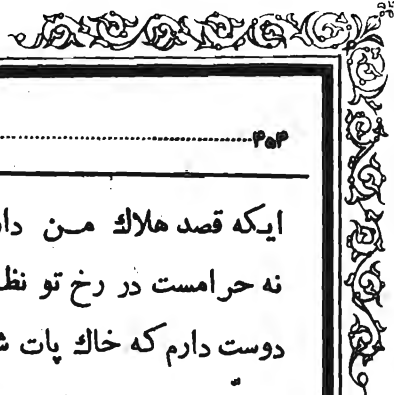 ۴۵۴
ایکه قصد هلاك من
نه حرامست در رخ تو
دوست دارم که خاك پات